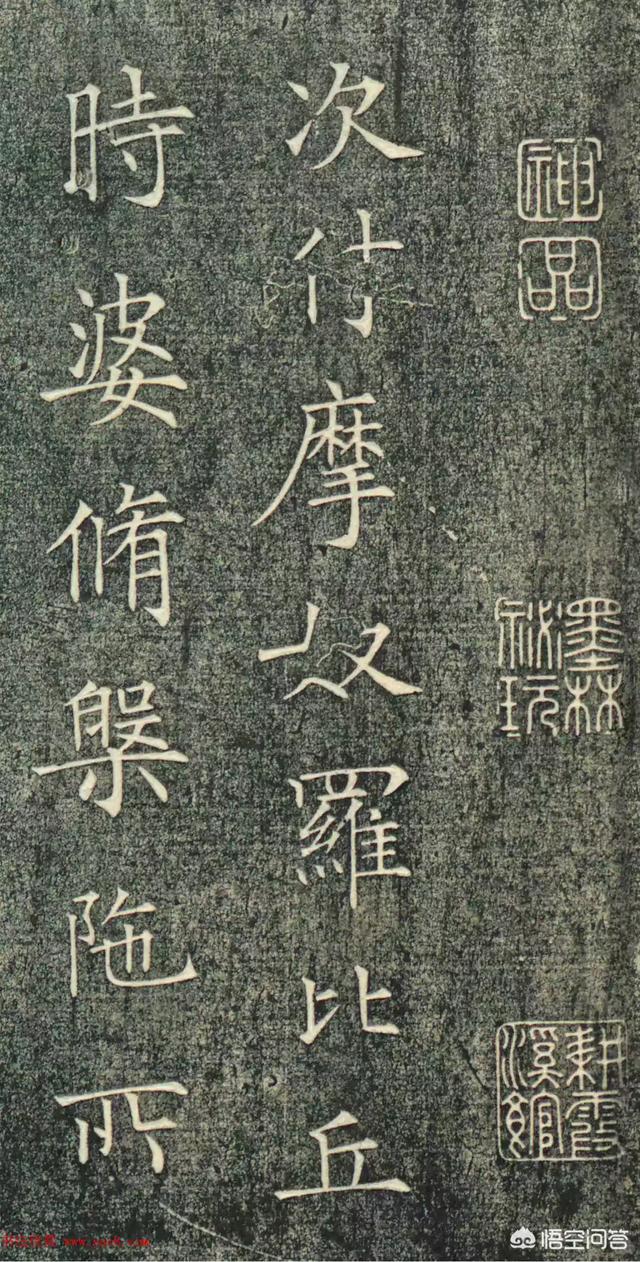 神品
墨林
祕玩
耕霞
溪館
次付摩奴羅比丘
時婆脩槃陁所
悟空问答